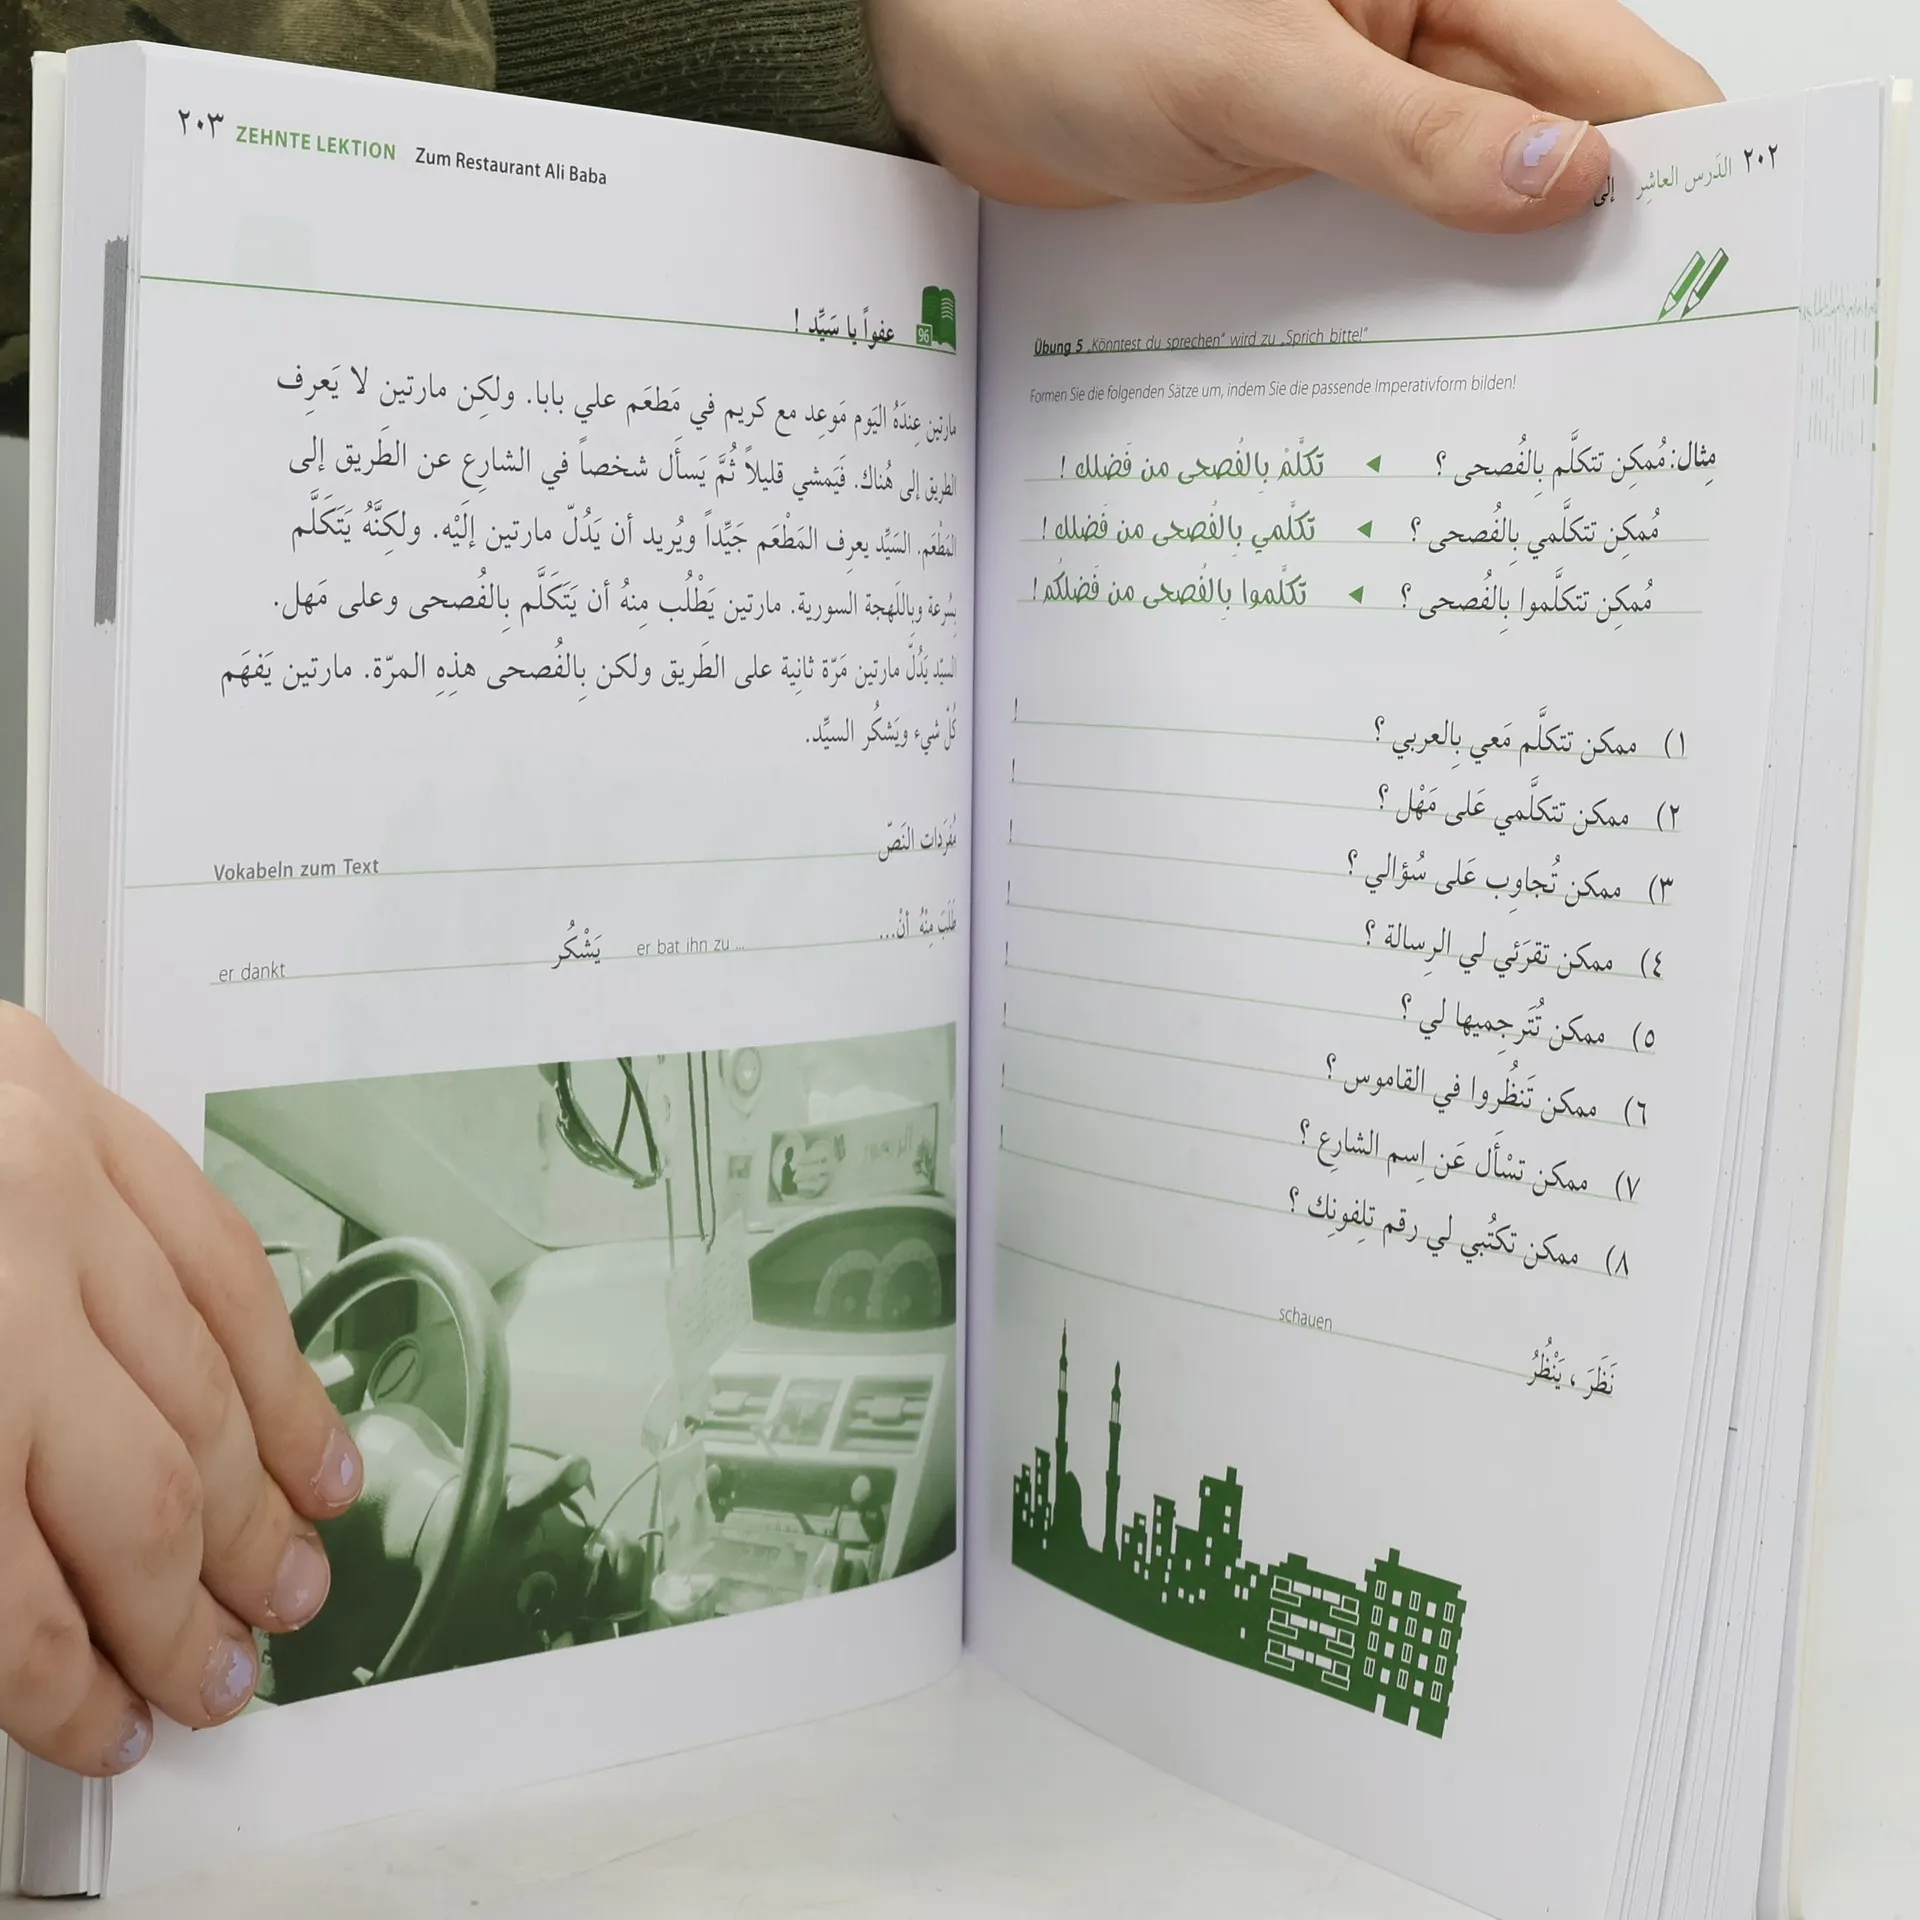 ٢٠٢ الدَّرس العاشِر إلى
Übung 5 „Könntest du sprechen“ wird zu „Sprich bitte!“
Formen Sie die folgenden Sätze um, indem Sie die passende Imperativform bilden!
مِثال: مُمكِن تتكلَّم بِالفُصحى ؟ ◄ تكلَّمْ بِالفُصحى من فَضلك !
مُمكِن تتكلَّمي بِالفُصحى ؟ ◄ تكلَّمي بِالفُصحى من فَضلك !
مُمكِن تتكلَّموا بِالفُصحى ؟ ◄ تكلَّموا بِالفُصحى من فَضلكُم !
١) ممكن تتكلَّم مَعي بِالعربي ؟ !
٢) ممكن تتكلَّمي عَلى مَهْل ؟ !
٣) ممكن تُجاوِب عَلى سُؤالي ؟ !
٤) ممكن تقرَئي لي الرِسالة ؟ !
٥) ممكن تُتَرجِميها لي ؟ !
٦) ممكن تَنظُروا في القاموس ؟ !
٧) ممكن تسْأَل عَن اِسم الشارِع ؟ !
٨) ممكن تكتُبي لي رقم تلِفونِك ؟ !
نَظَرَ ، يَنْظُرُ schauen
٢٠٣ ZEHNTE LEKTION Zum Restaurant Ali Baba
96 عفواً يا سَيِّد !
مارتين عِندَهُ اليَوم مَوعِد مع كريم في مَطعَم علي بابا. ولكِن مارتين لا يَعرِف
الطريق إلى هُناك. فَيَمشي قليلاً ثُمَّ يَسأَل شخصاً في الشارِع عن الطَريق إلى
المَطْعَم. السَيِّد يعرِف المَطْعَم جَيِّداً ويُريد أن يَدُلّ مارتين إلَيْه. ولكِنَّهُ يَتَكَلَّم
بِسُرعة وبِاللَهجة السورية. مارتين يَطْلُب مِنهُ أن يَتَكَلَّم بِالفُصحى وعلى مَهل.
السيّد يَدُلّ مارتين مَرّة ثانِية على الطَريق ولكن بِالفُصحى هذِهِ المرّة. مارتين يَفهَم
كُلّ شيء ويَشكُر السيِّد.
مُفرَدات النَصّ Vokabeln zum Text
طَلَبَ مِنْهُ أنْ... er bat ihn zu ... يَشْكُر er dankt